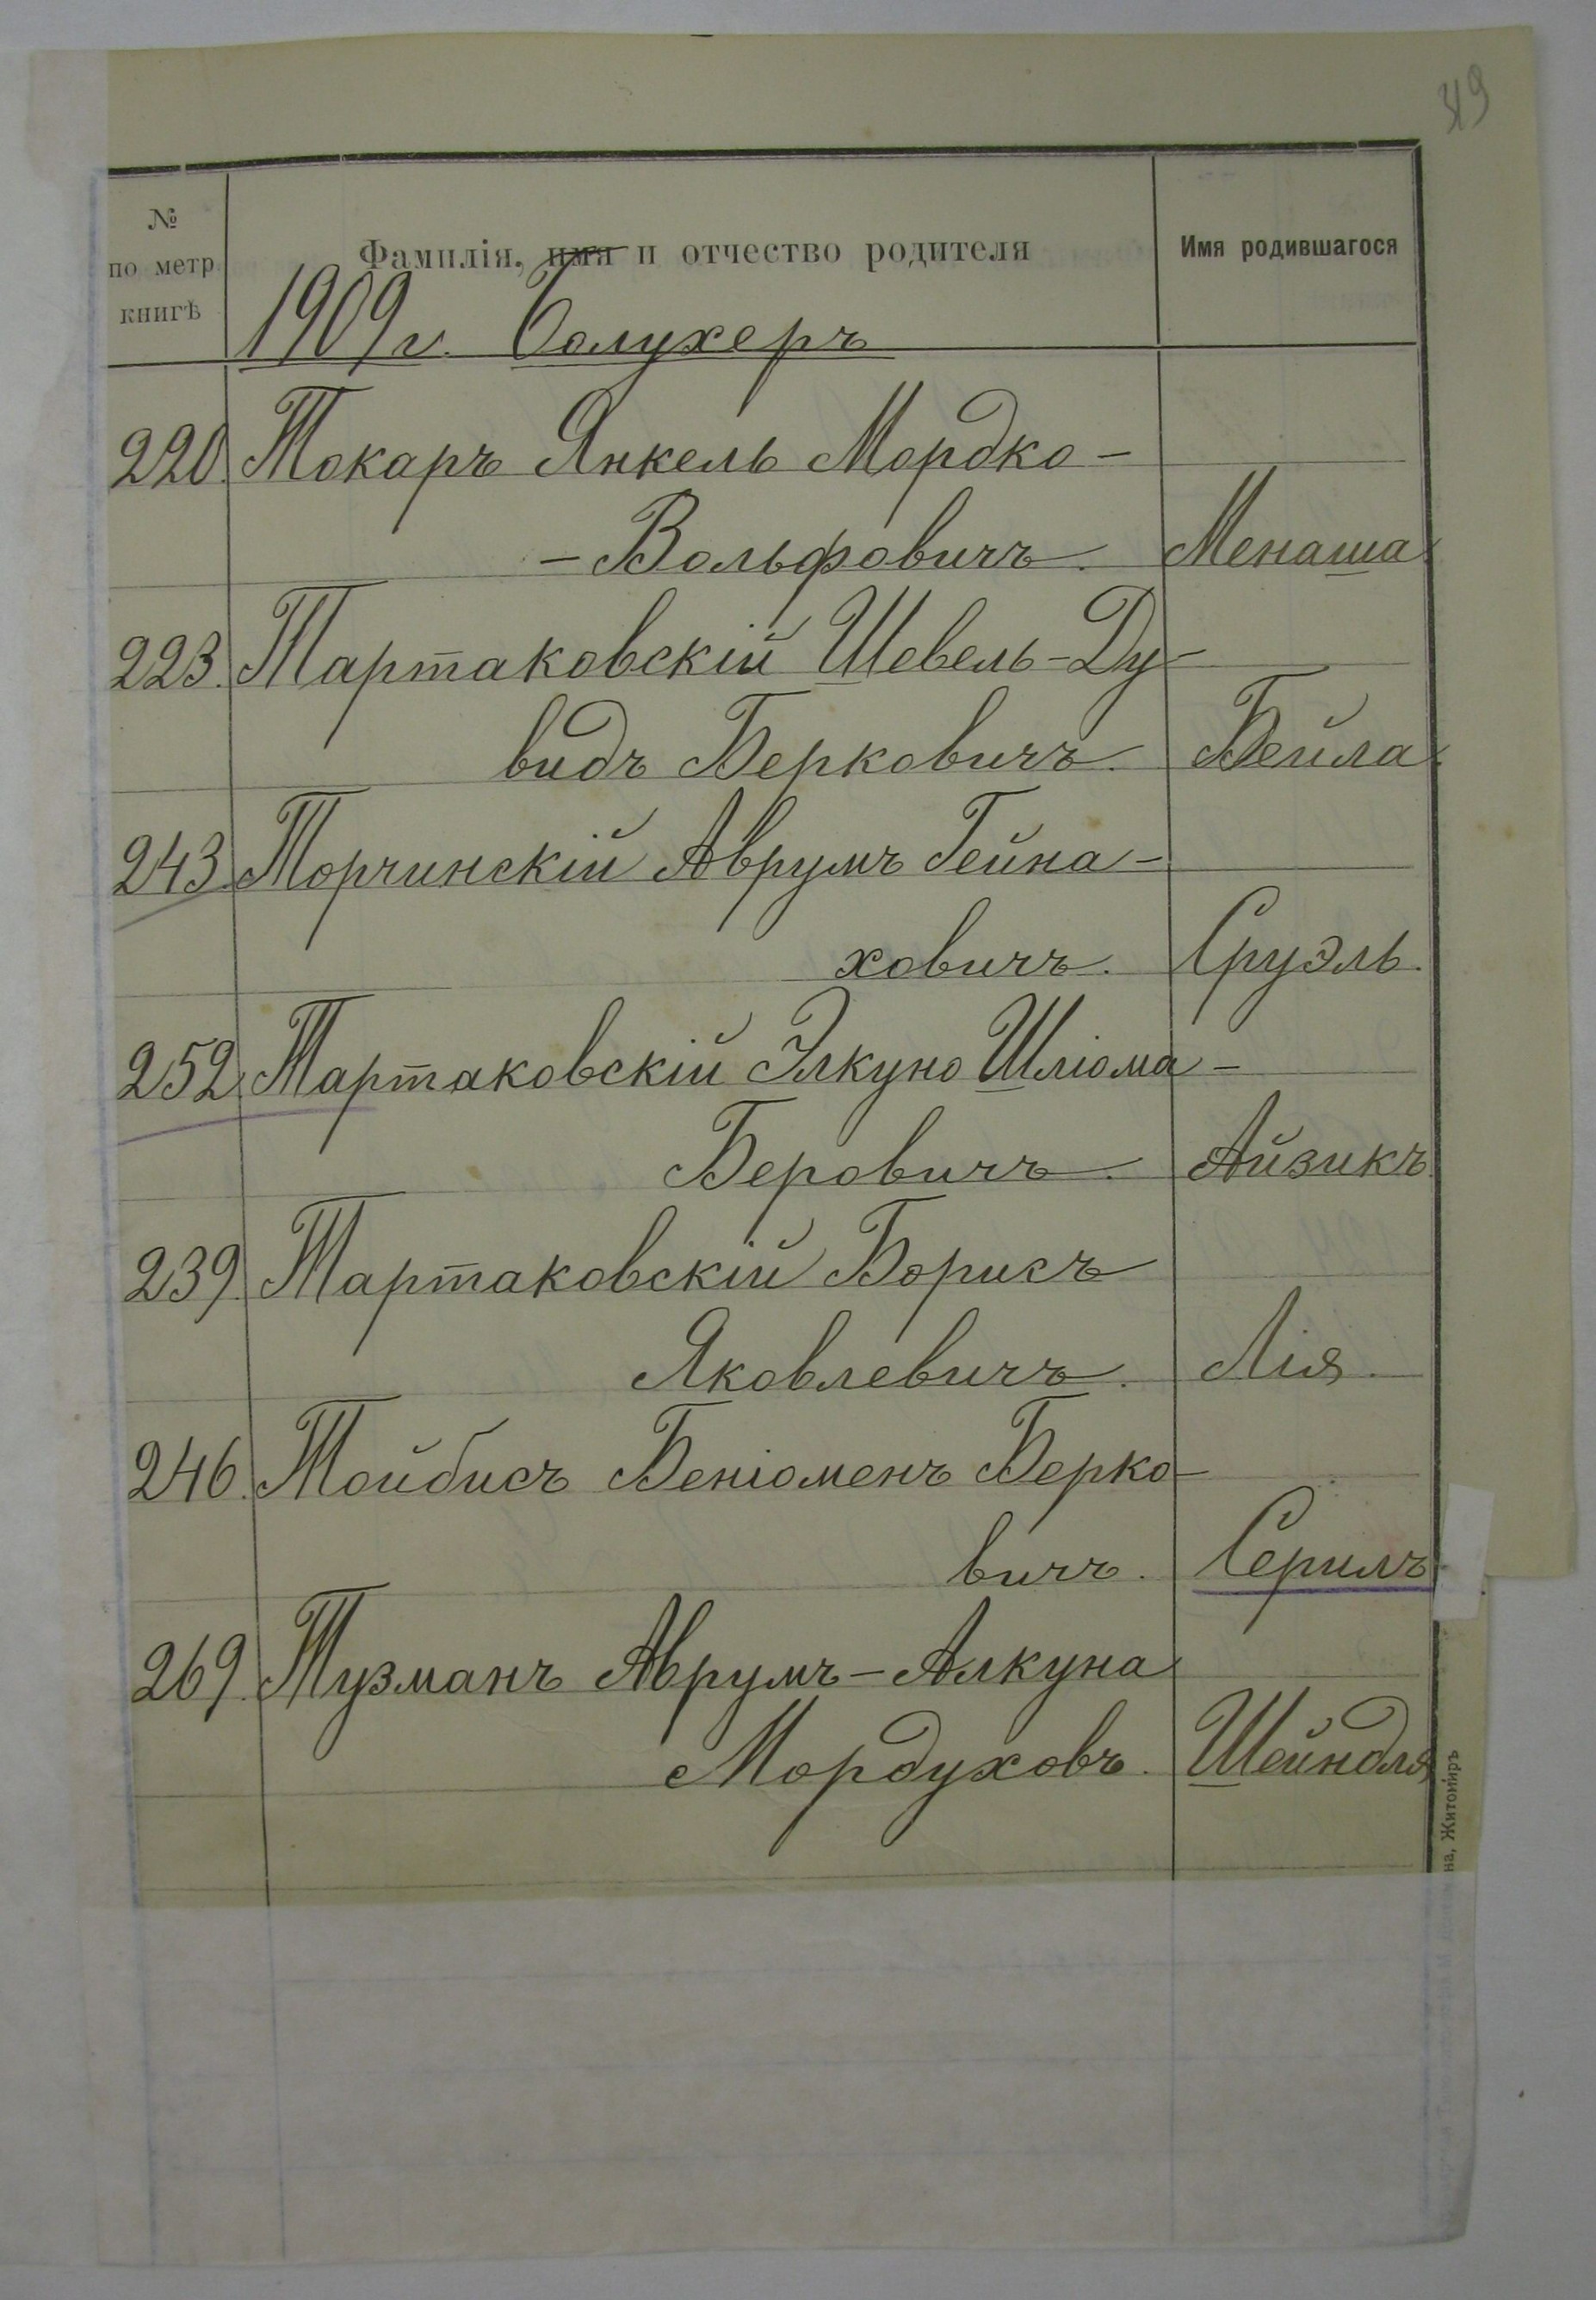 49
№
по метр.
книгѣ
Фамилія, имя и отчество родителя
Имя родившагося
1909 г. Болухеръ
220. Токаръ Янкель Мордко-
-Вольфовичъ. Менаша
223. Тартаковскій Шевель-Ду-
видъ Берковичъ. Бейла
243. Торчинскій Аврумъ Гейна-
ховичъ. Сруэль.
252. Тартаковскій Элкуно Шліома-
Беровичъ. Айзикъ
239. Тартаковскій Борисъ
Яковлевичъ. Лія.
246. Тойбисъ Беніоменъ Берко-
вичъ. Серилъ
269. Тузманъ Аврумъ-Алкуна
Мордуховъ. Шейндля
на, Житомиръ